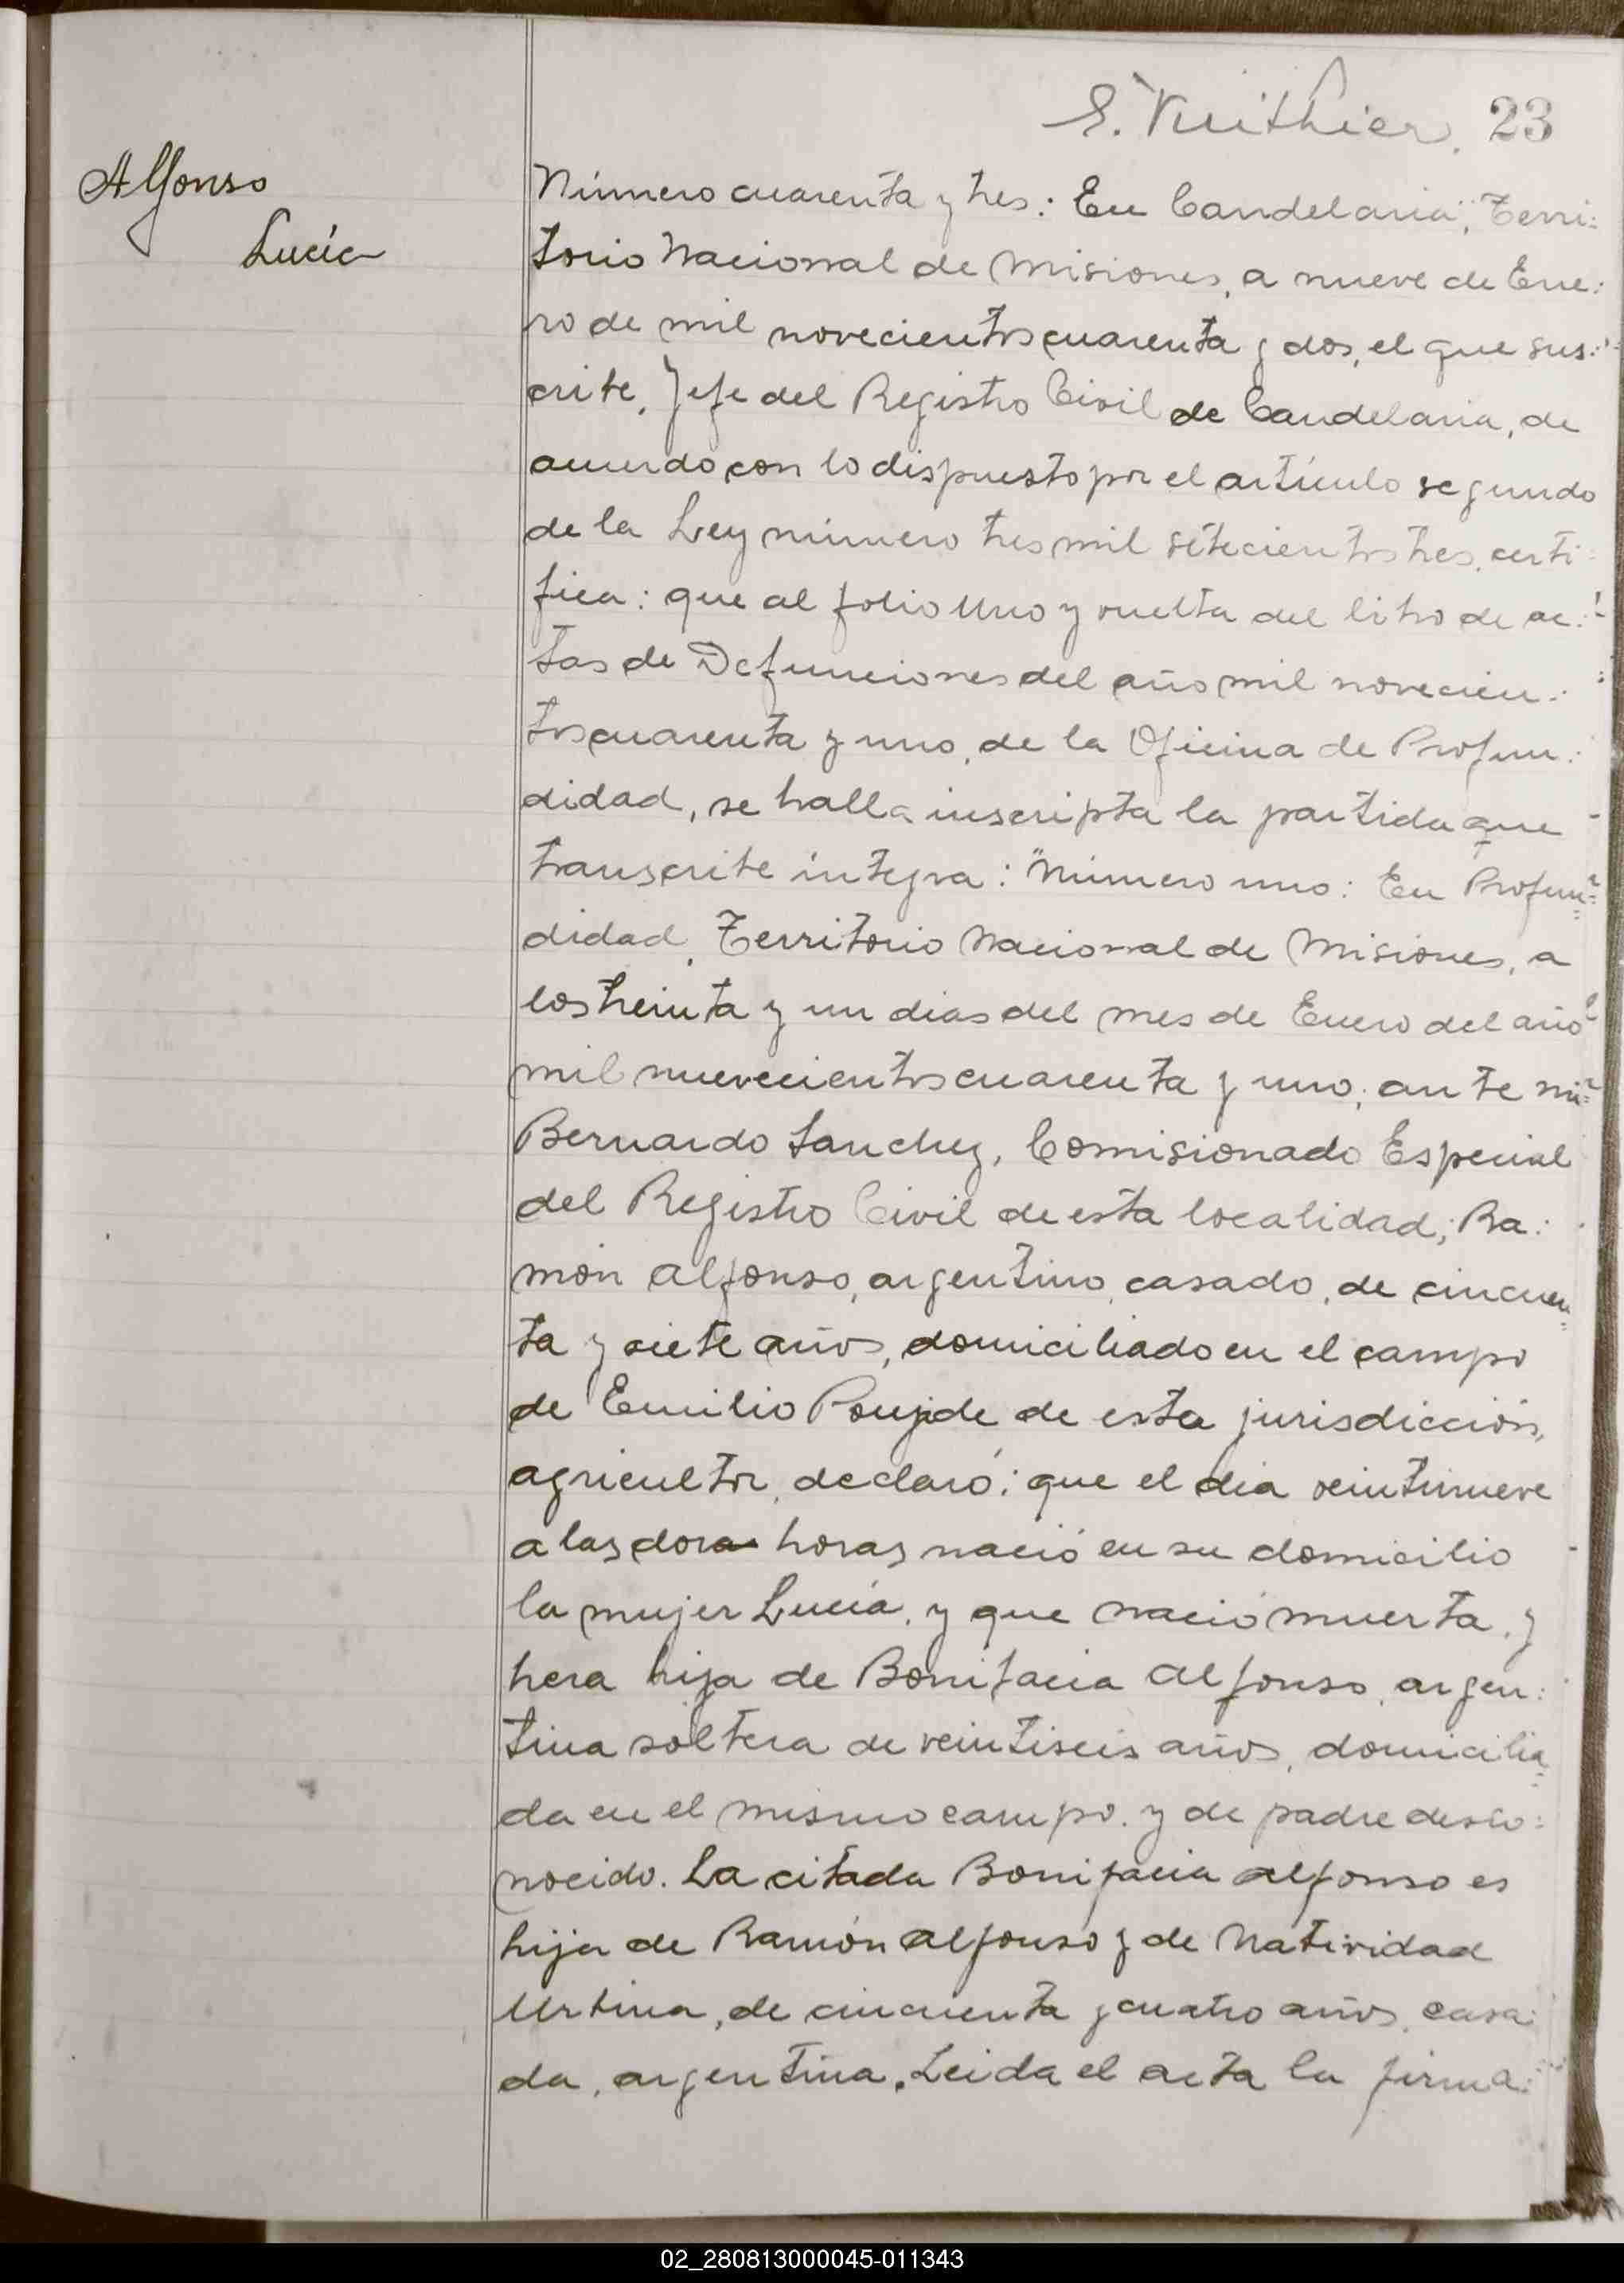 E. Vuithier. 23
Alfonso
Lucía
Número cuarenta y tres: En Candelaria, Terri:
torio Nacional de Misiones, a nueve de Ene:
ro de mil novecientos cuarenta y dos, el que sus:
cribe, Jefe del Registro Civil de Candelaria, de
acuerdo con lo dispuesto por el artículo segundo
de la Ley número tres mil setecientos tres, certi:
fica: que al folio uno y vuelta del libro de ac:
tas de Defunciones del año mil novecien:
tos cuarenta y uno, de la Oficina de Profun:
didad, se halla inscripta la partida que
transcribe íntegra: "Número uno: En Profun=
didad, Territorio Nacional de Misiones, a
los treinta y un dias del mes de Enero del año
mil nuevecientos cuarenta y uno, ante mi=
Bernardo Sanchez, Comisionado Especial
del Registro Civil de esta localidad; Ra:
món Alfonso, argentino, casado, de cincuen=
ta y siete años, domiciliado en el campo
de Emilio de esta jurisdicción,
agricultor, declaró: que el dia veintinueve
a las horas nació en su domicilio
la mujer Lucía, y que nació muerta, y
hera hija de Bonifacia Alfonso, argen:
tina soltera de veintiseis años, domicilia=
da en el mismo campo. y de padre desco:
nocido. La citada Bonifacia Alfonso es
hija de Ramón Alfonso y de Natividad
Urbina, de cincuenta y cuatro años, casa:
da, argentina. Leida el acta la firma:
02_280813000045-011343